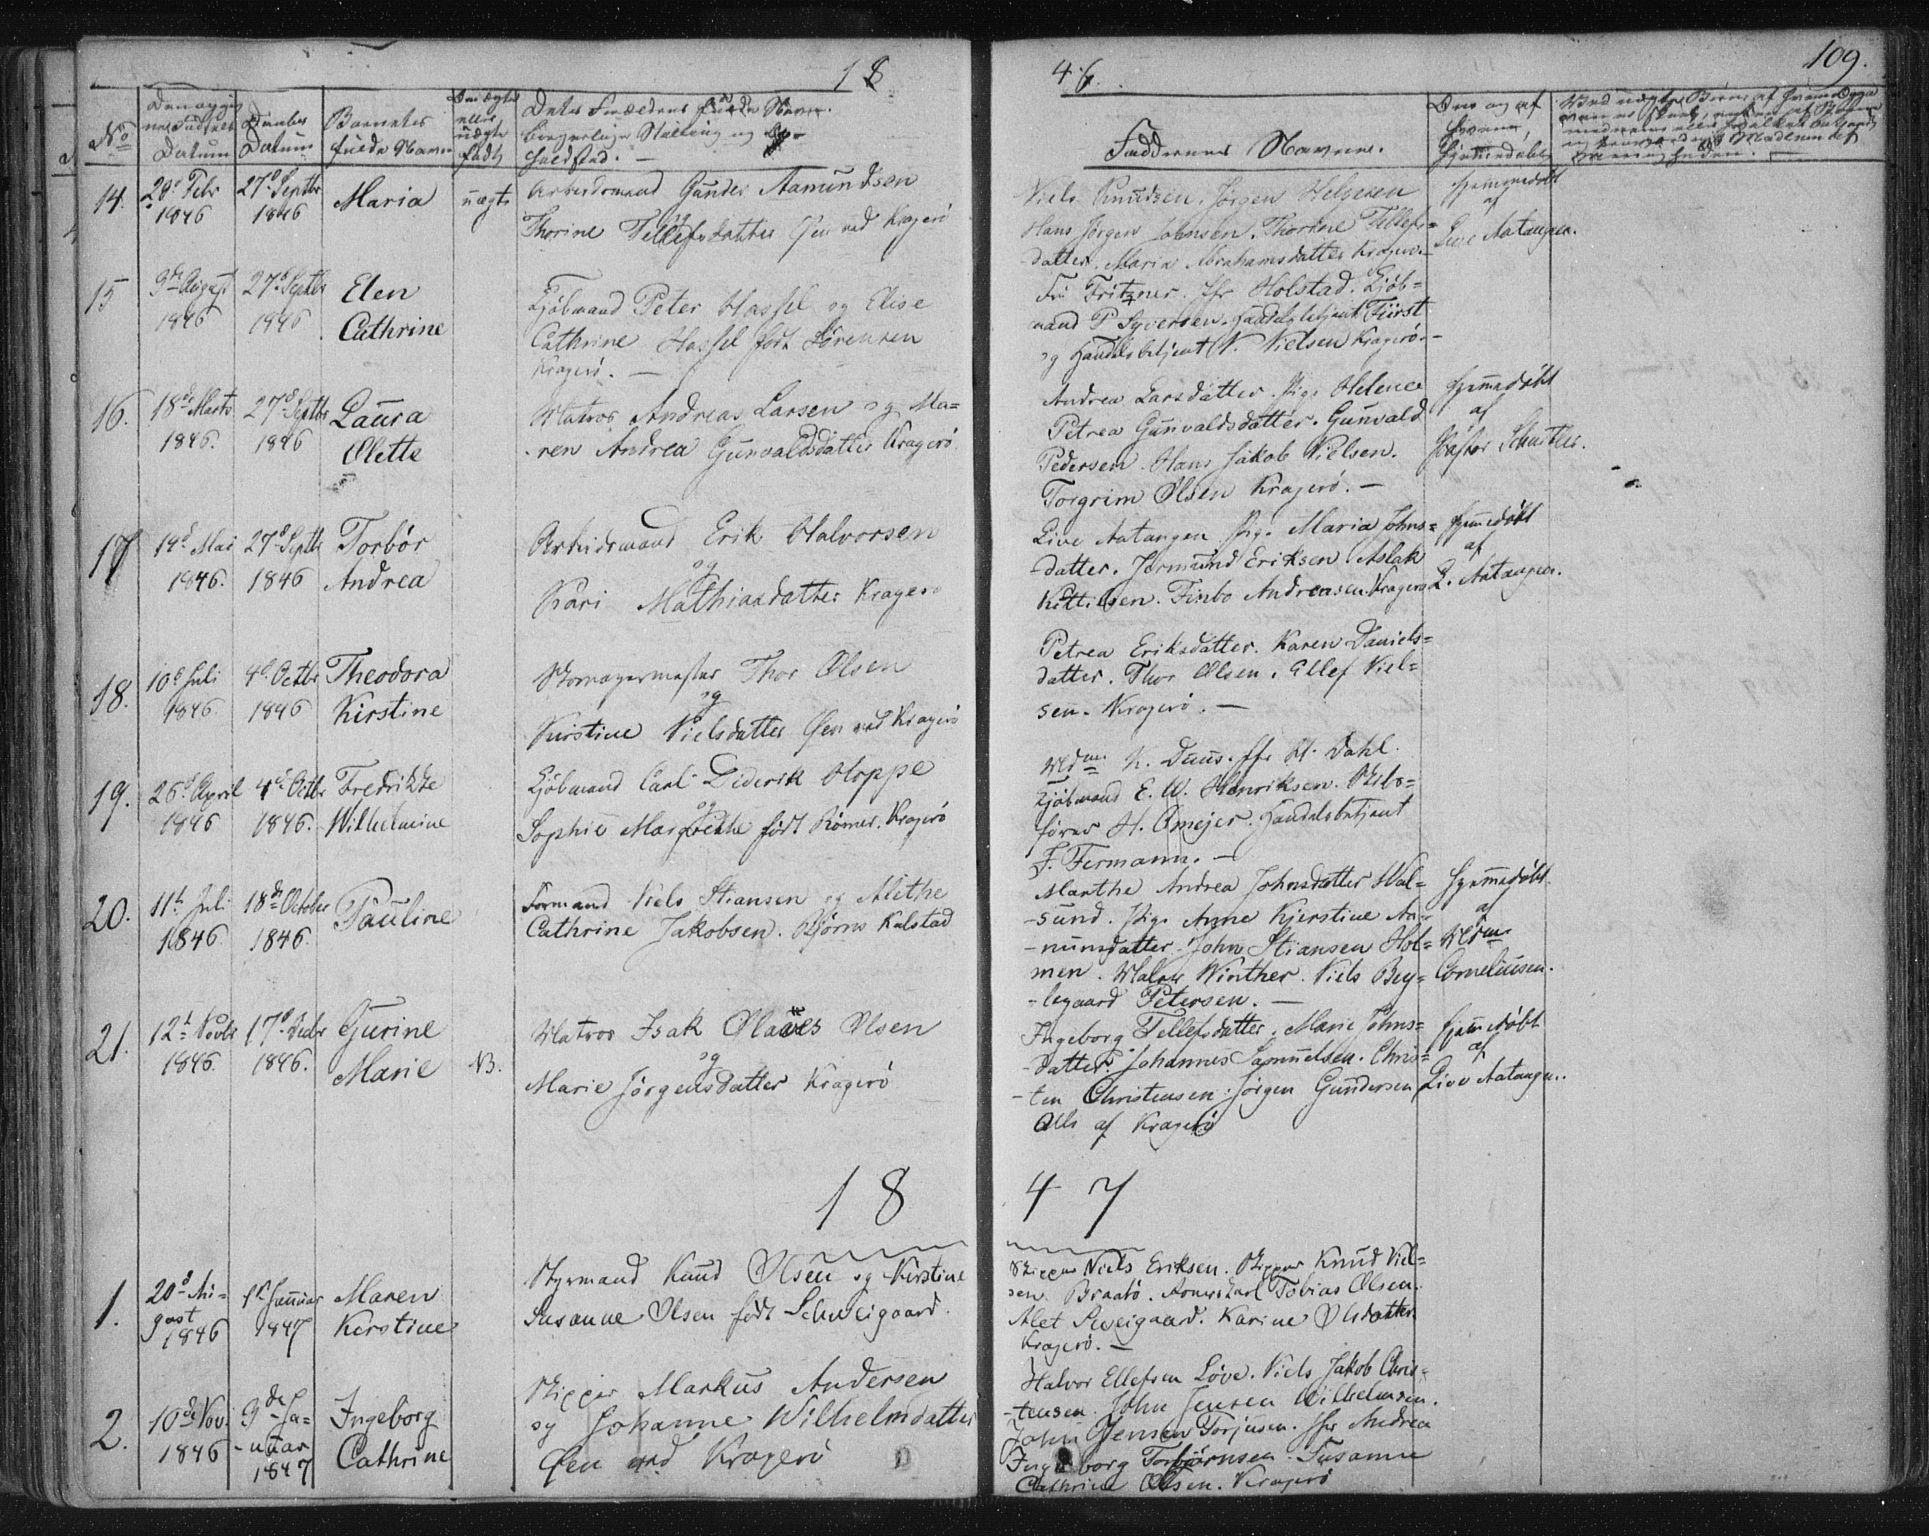 18 46. 109.
No
Daabs Datum
Barnets fulde Navn
Faddernes Navne.
14. 20de Febr 1846 27de Septbr 1846 Maria uægte
Arbeidsmand Gunder Aamundsen
og
Thorine Tellefsdatter Øen ved Kragerö
Niels Knudsen. Jørgen Helgesen
Hans Jörgen Johnsen. Thorine Tellefs=
datter. Maria Abrahamsdatter Kragerö
Hjemmedöbt
af
Live Aatangen.
15 9de August 1846 27de Septbr 1846 Elen Cathrine
Kjöbmand Peter Hassel og Elise
Cathrine Hassel född Sörensen
Kragerö. —
Fru Fritzner. Jfr Holstad. Kjöb=
mand P. Syversen. Handelsbetjent Fürst
og Handelsbetjent N. Nielsen Kragerö. —
16. 18de Marts 1846. 27de Septbr 1846 Laura Olette
Matros Andreas Larsen og Ma=
ren Andrea Gunvaldsdatter Kragerö
Andrea Larsdatter. Pige Helene
Petrea Gunvaldsdatter. Gunvald
Pedersen. Hans Jakob Nielsen.
Torgrim Olsen Kragerö. —
Hjemmedöbt
af
Pastor
17 19de Mai 1846. 27de Septbr 1846 Torbör Andrea
Arbeidsmand Erik Halvorsen
og
Kari Mathiasdatter Kragerö
Live Aatangen. Pige Maria Johns=
datter. Jormund Eriksen. Aslak
Kittilsen. Finbo Andreasen. Kragerö
Hjemmedöbt
af
L. Aatangen.
18. 10de Juli 1846 4de Octbr 1846 Theodora Kirstine
Skomagermester Thor Olsen
og
Kirstine Nielsdatter Øen ved Kragerö
Petrea Eriksdatter. Karen Daniels=
datter. Thor Olsen. Ellef Niel=
sen. Kragerö. —
19. 26de April 1846 4de Octbr 1846. Fredrikke Wilhelmine
Kjöbmand Carl Diderik Hoppe
og
Sophie Margrethe född Römer. Kragerö
Mdme K. Daus. Jfr H. Dahl.
Kjöbmand E. W. Henriksen. Skibs=
förer H. Omejer. Handelsbetjent
F. Fermann. —
20. 11te Juli 1846 18de October 1846. Pauline
Formand Niels Stiansen og Alethe
Cathrine Jakobsen. Björns Kalstad
Marthe Andrea Johnsdatter Hal=
-sund. Pige Anne Kjerstine An=
-nunsdatter. John Stiansen Hol=
men. Winther. Niels Bey=
-legaard Petersen. —
Hjemmedöbt
af
Mdme
Corneliusen.
21. 12te Novbr 1846. 17de Decbr 1846. Gurine Marie NB.
Matros Isak Olaves Olsen
og
Marie Jörgensdatter Kragerö
Ingeborg Tellefsdatter. Marie Johns=
-datter. Johannes Samuelsen. Chris=
-ten Christensen. Jörgen Gundersen
Alle af Kragerö
Hjemmedöbt
af
Live Aatangen.
18 47
1. 20de Au-gust 1846 1te Januar 1847 Maren Kerstine
Styrmand Knud Olsen og Kerstine
Susanne Olsen född Schweigaard.
Skipper Niels Eriksen. Skipper Knud Niel=
sen. Braatö. Tobias Olsen.
Alet Sweigaard. Karine Olsdatter.
Kragerö. —
2. 10de Nov. 1846 3de Ja=-nuar 1847 Ingeborg Cathrine
Skipper Markus Andersen
og Johanne Wilhelmdatter
Øen ved Kragerö
Halvor Ellefsen Löve. Niels Jakob Chris=
-tensen. John Jensen Wilhelmsen.
John Jensen Torjusen. Jfr Andrea
Ingeborg Torbjörnsen. Susanne
Cathrine Olsen. Kragerö